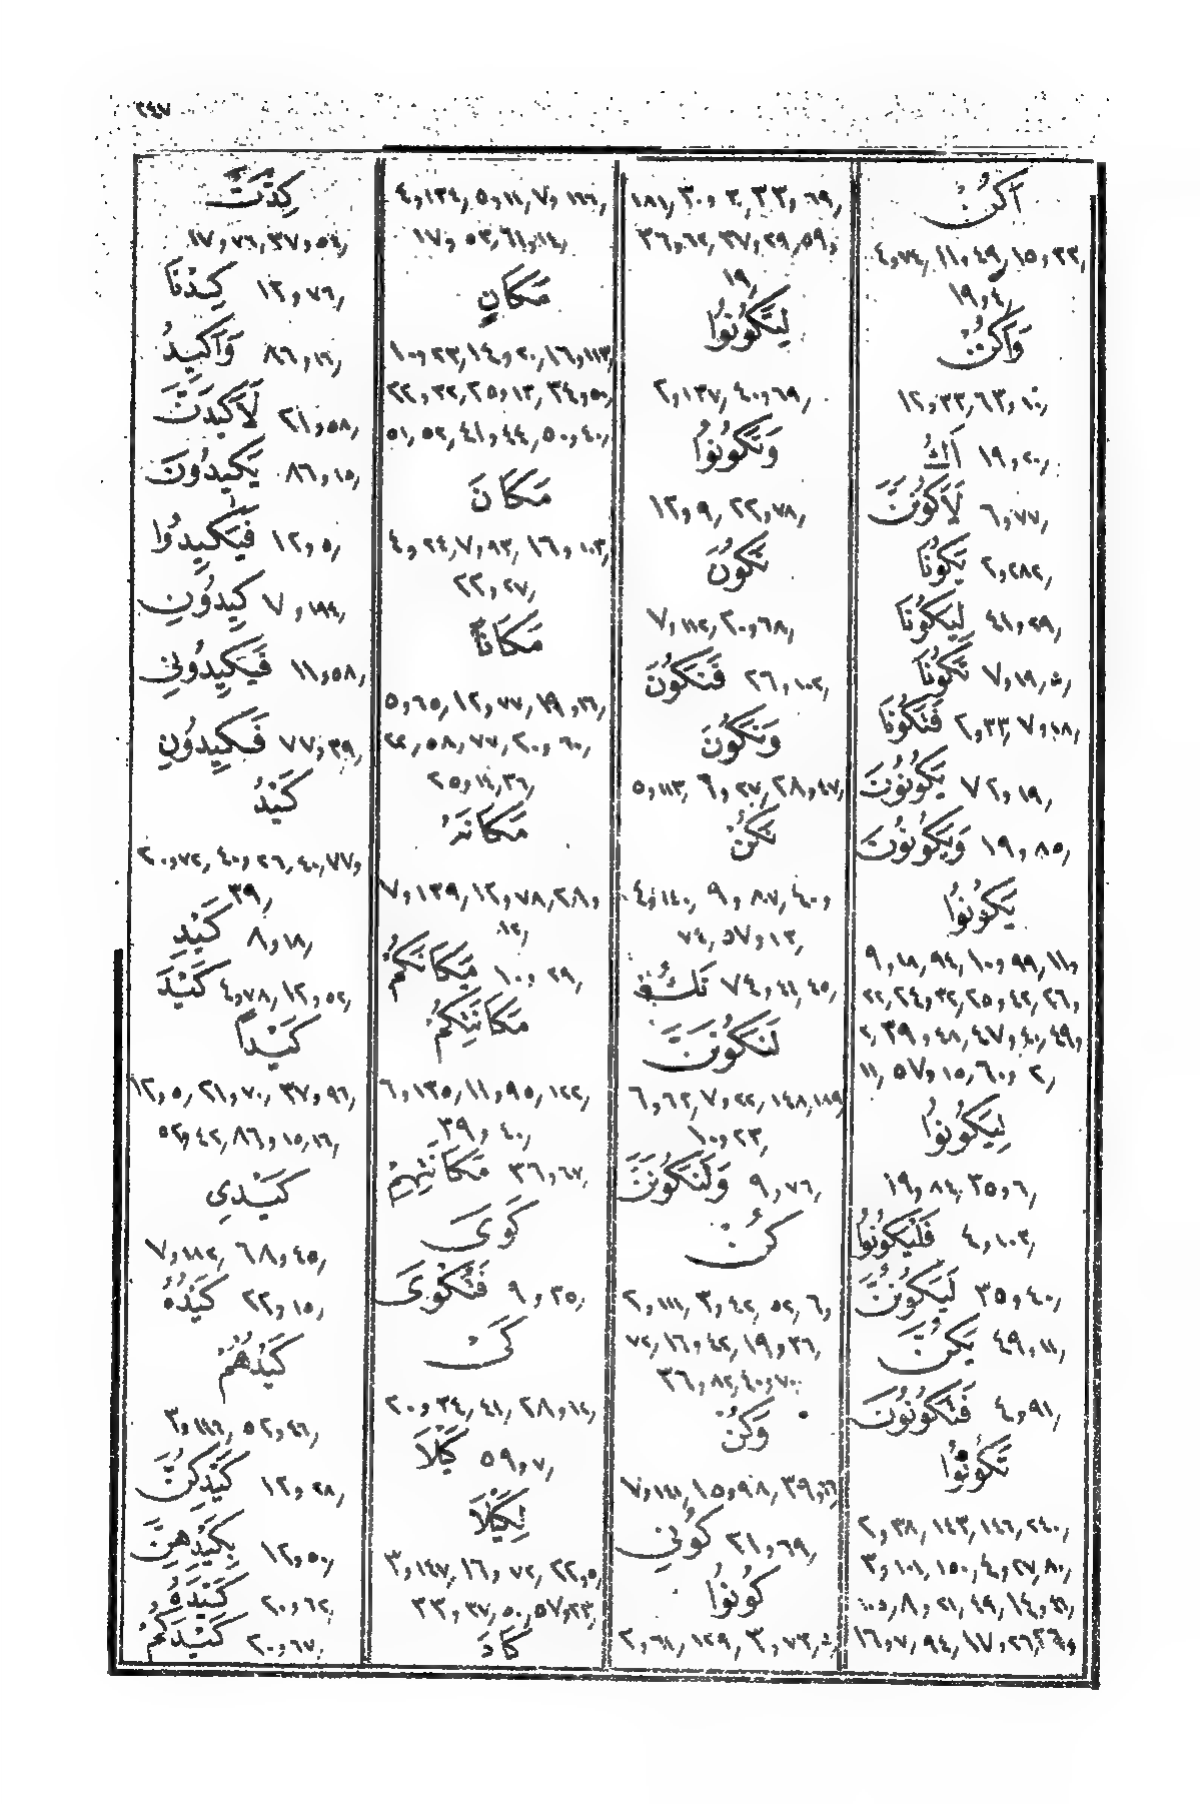 ٢٤٧
اَكُنْ
٤,٧٤, ١١,٤٩, ١٥,٣٣,
١٩,٤,
وَاَكُنْ
١٢,٣٣, ٦٣,١٠,
اَكُ ١٩,٢٠,
لَاَكُونَنَّ ٦,٧٧,
يَكُونَا ٢,٢٨٢,
لِيَكُونَا ٤١,٢٩,
تَكُونَا ٧,١٩,
فَتَكُونَا ٢,٣٣, ٧,١٨,
يَكُونُونَ ٧٢,١٩,
وَيَكُونُونَ ١٩,٨٥,
يَكُونُوا
٩,١٨,٩٤, ١٠,٩٩, ١١,
٢٢, ٢٤,٣٢, ٢٥,٤٢, ٢٦,
٢, ٣٩,٤٨, ٤٧,٤٠, ٤٩,
١١, ٥٧,١٥, ٦٠,٢,
لِيَكُونُوا
١٩,٨٤, ٣٥,٦,
فَلْيَكُونُوا ٤,١٠٢,
لَيَكُونُنَّ ٣٥,٤٠,
يَكُنَّ ٤٩,١١,
فَتَكُونُونَ ٤,٩١,
تَكُونُوا
٢,٣٨, ١٤٣, ١٤٦, ٢٤٠,
٣,١٠١, ١٥٠, ٤,٢٧, ٨٠,
١٠٥, ٨,٢١, ٤٩, ١٤,٤٤,
١٦,٧,٩٤, ١٧,٢٦,
١٨١, ٣٠,٣, ٣٣,٦٩,
٣٦,٦٢, ٣٧,٢٩, ٥٩,
١٩,
لِتَكُونُوا
٢,١٣٧, ٤٠,٦٩,
وَتَكُونُوا
١٢,٩, ٢٢,٧٨,
تَكُونَ
٧,١١٢, ٢٠,٦٨,
فَتَكُونَ ٢٦,١٠٢,
وَتَكُونَ
٥,١١٣, ٦,٢٧, ٢٨,٤٧,
تَكُنْ
٤,١٤٠, ٩,٨٧, ٤٠,
٧٤, ٥٧,١٣,
تَكُ ٧٤,٤٤, ٤٥,
لَتَكُونَنَّ
٦,٦٢, ٧,٢٢, ١٤٨, ١٨٩,
١٠,٢٣,
وَلَتَكُونَنَّ ٩,٧٦,
كُنْ
٢,١١١, ٣,٤٢, ٥٢, ٦,
٧٢, ١٦,٤٢, ١٩,٣٦,
٣٦,٨٢, ٤٠,٧٠,
وَكُنْ
٧,١٤٤, ١٥,٩٨, ٣٩,٦٦,
كُونِي ٢١,٦٩,
كُونُوا
٢,٦٤, ١٢٩, ٣,٧٣,
٤,١٣٤, ٥,١١, ٧,١٦٦,
١٧,٥٣, ٦١,١٤,
مَكَانٍ
١٠,٢٣, ١٤,٢٠, ١٦,١١٣,
٢٢,٣٢, ٢٥,١٣, ٣٤,٥٠,
٥١,٥٢, ٤١,٤٤, ٥٠,٤٠,
مَكَانَ
٤,٢٤, ٧,٩٣, ١٦,١٠٣,
٢٢,٢٧,
مَكَانًا
٥,٦٥, ١٢,٧٧, ١٩,١٦,
٢٢,٥٨, ٧٧, ٢٠,٦٠,
٢٥,١٤, ٣٦,
مَكَانَهُ
٧,١٣٩, ١٢,٧٨, ٢٨,
٨٢,
مَكَانَكُمْ ١٠,٢٩,
مَكَانَتِكُمْ
٦,١٣٥, ١١,٩٥, ١٢٢,
٣٩,٤٠,
مَكَانَتِهِمْ ٣٦,٦٧,
كَوَىَ
فَتُكْوَىَ ٩,٣٥,
كَىْ
٢٠,٣٤, ٤١, ٢٨,١٤,
كَيْلَا ٥٩,٧,
لِكَيْلَا
٣,١٤٧, ١٦,٧٢, ٢٢,٥,
٣٣,٣٧, ٥٠, ٥٧,٢٣,
كَادَ
كِدْتَّ
١٧,٧٦, ٣٧,٥٤,
كِدْنَا ١٢,٧٦,
وَاَكِيدُ ٨٦,١٦,
لَاَكِيدَنَّ ٢١,٥٨,
يَكِيدُونَ ٨٦,١٥,
فَيَكِيدُوا ١٢,٥,
كِيدُونِ ٧,١٩٤,
فَكِيدُونِي ١١,٥٨,
فَكِيدُونِ ٧٧,٣٩,
كَيْدُ
٢٠,٧٢, ٤٠,٢٦, ٤٠, ٧٧,
٣٩,
كَيْدِ ٨,١٨,
كَيْدَ ٤,٧٨, ١٢,٥٢,
كَيْداً
١٢,٥, ٢١,٧٠, ٣٧,٩٦,
٥٢,٤٢, ٨٦,١٥, ١٦,
كَيْدِى
٧,١٨٢, ٦٨,٤٥,
كَيْدُهُ ٢٢,١٥,
كَيْدُهُمْ
٣,١٢٤, ٥٢,٤٦,
كَيْدِكُنَّ ١٢,٢٨,
بِكَيْدِهِنَّ ١٢,٥٠,
كَيْدَهُ ٢٠,٦٢,
كَيْدَكُمْ ٢٠,٦٧,